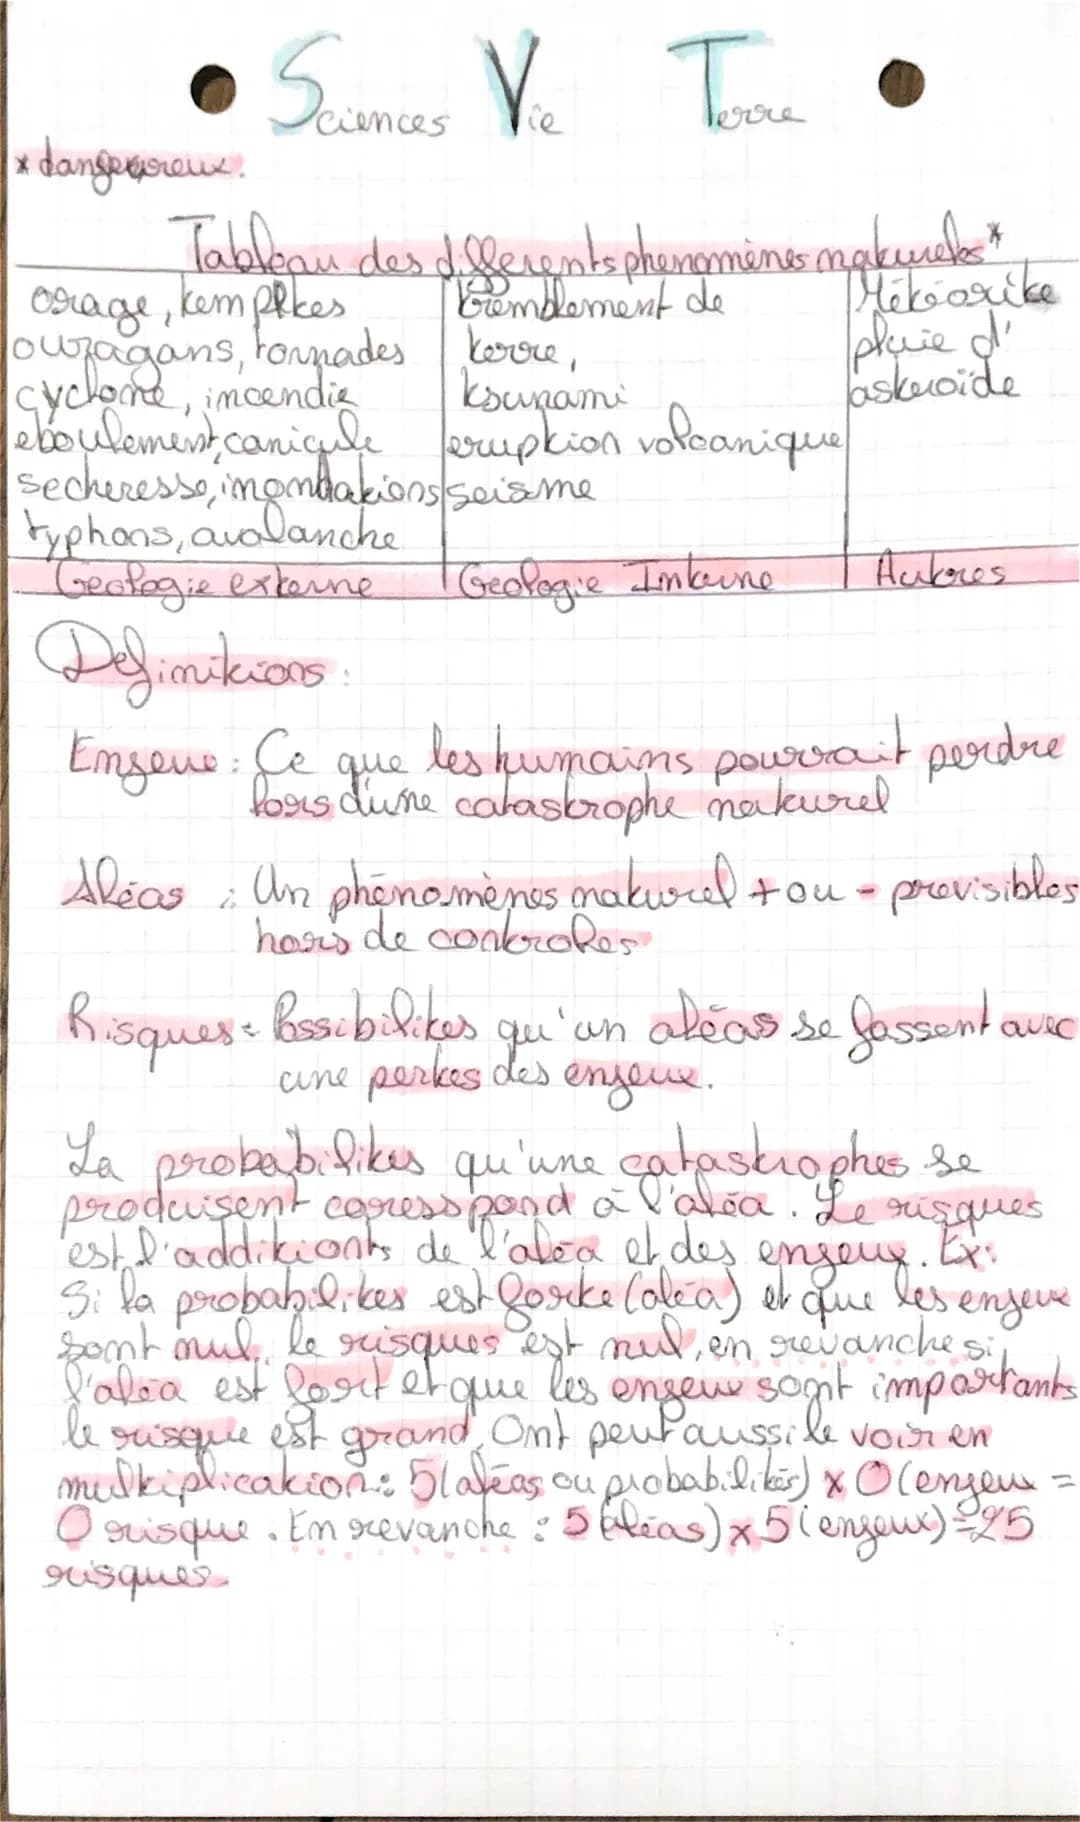 Sciences Vie Terre
* dangereux.
Tableau des differents phenomènes naturels*
orage, tempêtes
ouragans, tornades
cyclone, incendie
eboulement, canicule
secheresse, inondations
typhons, avalanche
tremblement de
terre,
tsunami
eruption volcanique
seisme
Météorite
pluie d'
asteroïde
Geologie externe
Geologie Interne
Autres
Définitions :
Enjeux : Ce que les humains pourrait perdre
lors d'une catastrophe naturel
Aléas : Un phénomènes naturel + ou - previsibles
hors de controles
Risques : Possibilites qu'un aléas se fassent avec
une pertes des enjeux.
La probabilites qu'une catastrophes se
produisent corresspond à l'aléa. Le risques
est l'additionts de l'aléa et des enjeux. Ex:
Si la probabilites est forte (aléa) et que les enjeux
sont nul, le risques est nul, en revanche si
l'aléa est fort et que les enjeux sont importants
le risque est grand. Ont peut aussi le voir en
multiplication : 5 (aléas ou probabilités) x 0 (enjeux =
0 risque. En revanche : 5 (aléas) x 5 (enjeux) = 25
risques.